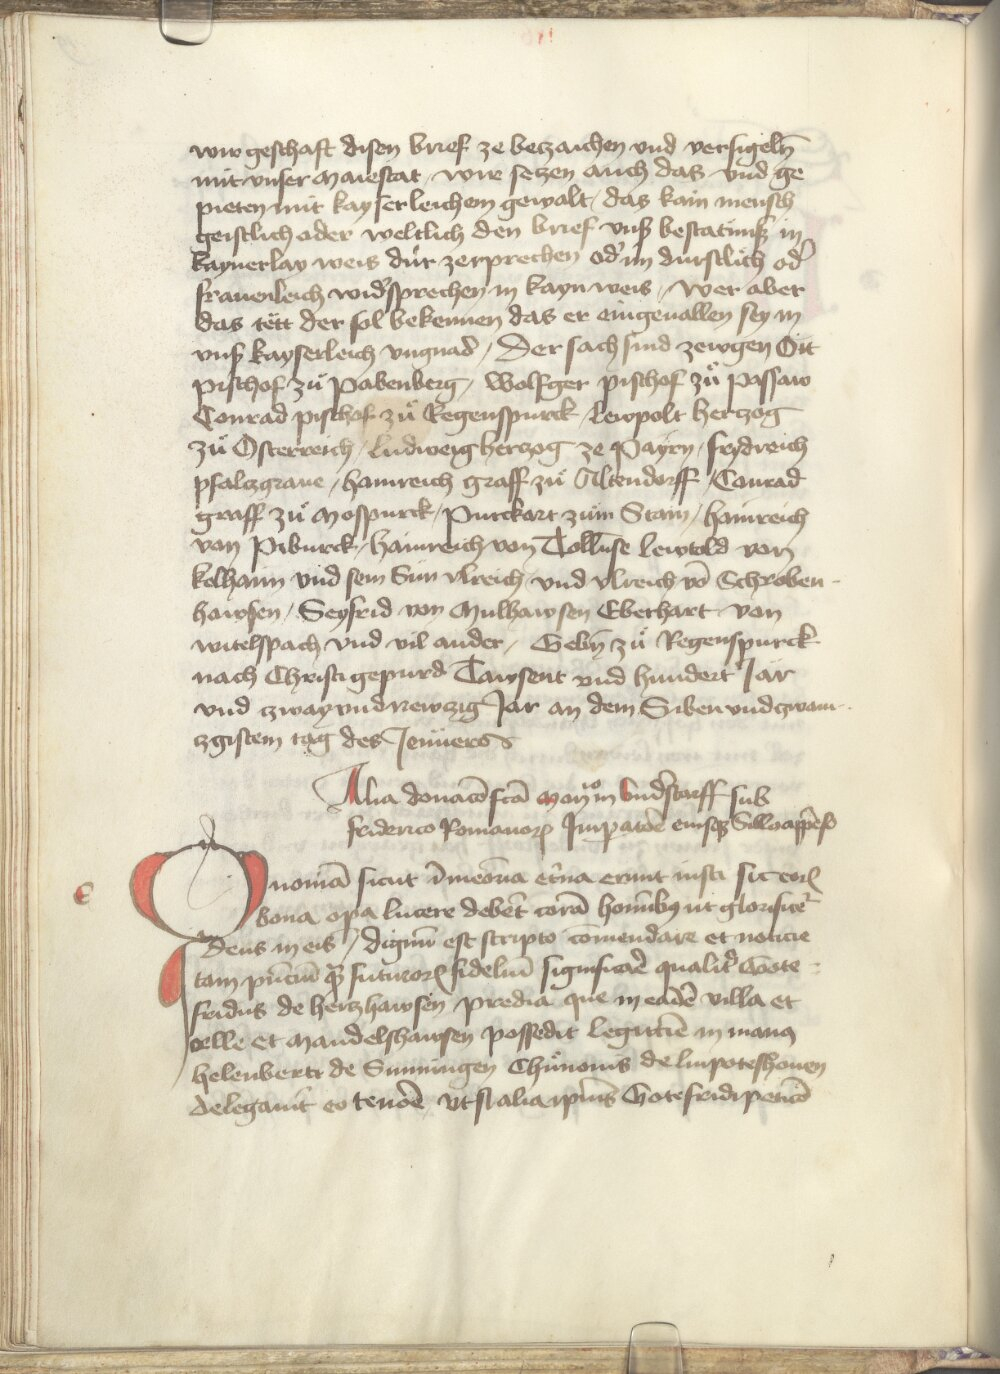 wir geschaft disen brief ze betzaichen vnd versigeln̄
mit vnser Maiestat / wir setzen auch das vnd ge
pieten mit kayserleichem gewalt / das kain mensch
geistlich oder weltlich den brief vnß bestatnuß in
kaynerlay weis dúr zerprechen od' im durstlich od'
frauenleich wid'sprechen in kayn weis / Wer aber
das tett der sol bekennen das er eingeuallen sey in
vnß kayserleich vngnad / Der sach sind zewgen Ott
pischof zu Pabenberg / Wolfger pischof zu Passaw
Conrad pischof zu Regenspurck / lewpolt hertzog
zu Osterreich / ludweig hertzog ze Payrn / frydreich
pfaltzgraue / hainreich graff zu Altendorff / Conrad
graff zu Mospurck / Purckart zum Stain / hainreich
von Piburck / hainreich von Tollunse lewtold von
kelhaim vnd sein Sun vlreich / vnd vlreich vō Schroben-
hawsen / Seyfrid von Mulhawsen Eberhart von
witelspach vnd vil ander / Gebn̄ zu Regenspurck
nach Christi gepurd Tawsent vnd hundert Jar
vnd zway vnd newzig Jar an dem Siben vnd zwain-
tzgistem tag des Jenners
Alia donacō fcā Mon̄rio in Vnd'starff sub
friderico Romanor̄ Impatōe eiusq̄ Sillo app̄eso
Quoniā sicut ī meōria et'na erunt iusti sic eor̄
bona opa lucere debēt corā hominibꝫ ut glorificet'
Deus in eis / dignū est scripto cōmendare et noticie
tam p̄ncium q̄ȝ futuror̄ fideliū significare qualit' Gote-
fridus de hertzhawsen predia que in eadē villa et
celle et Mandelshausen possedit legittīe in manꝰ
helenberti de Sunningen Chunonis de luipoteshouen
delegauit eo tenōe vt si alia ipius Gotefridi peticō